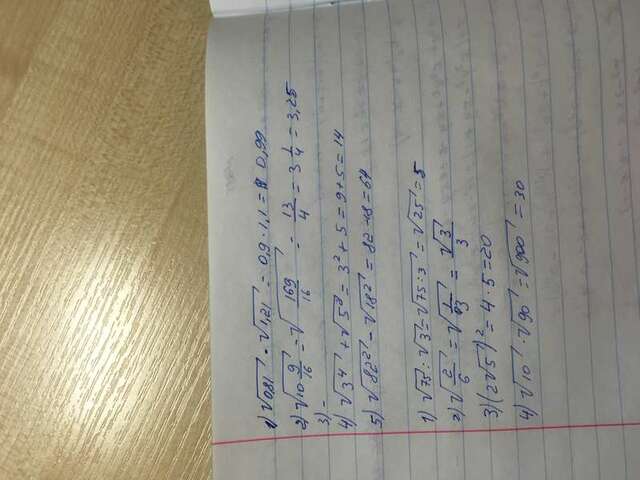 1) √0,81 · √1,21 = 0,9 · 1,1 = 0,99
2) √10 9/16 = √169/16 = 13/4 = 3 1/4 = 3,25
3) -
4) √3⁴ + √5² = 3² + 5 = 9 + 5 = 14
5) √82² - √18² = 82 - 18 = 64
1) √75 : √3 = √75 : 3 = √25 = 5
2) √2/6 = √1/3 = √3/3
3) (2√5)² = 4 · 5 = 20
4) √10 · √90 = √900 = 30